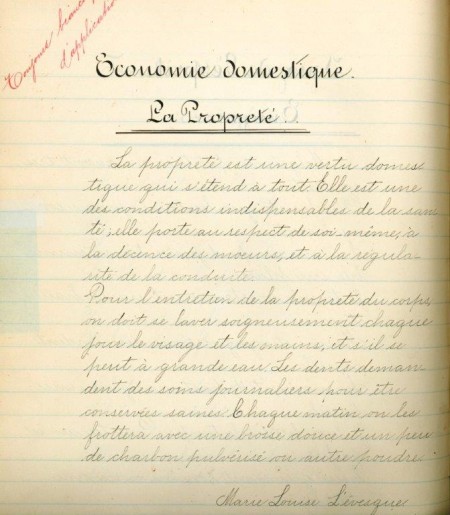 Toujours beaucoup
d'application
Economie domestique.
La Propreté.
La propreté est une vertu domes
tique qui s'étend à tout. Elle est une
des conditions indispensables de la san
té; elle porte au respect de soi-même, à
la décence des moeurs, et à la régula-
rité de la conduite.
Pour l'entretien de la propreté du corps,
on doit se laver soigneusement chaque
jour le visage et les mains, et s'il se
peut à grande eau. Les dents deman
dent des soins journaliers pour être
conservées saines. Chaque matin on les
frottera avec une brosse douce et un peu
de charbon pulvérisé ou autre poudre.
Marie Louise L'évesque